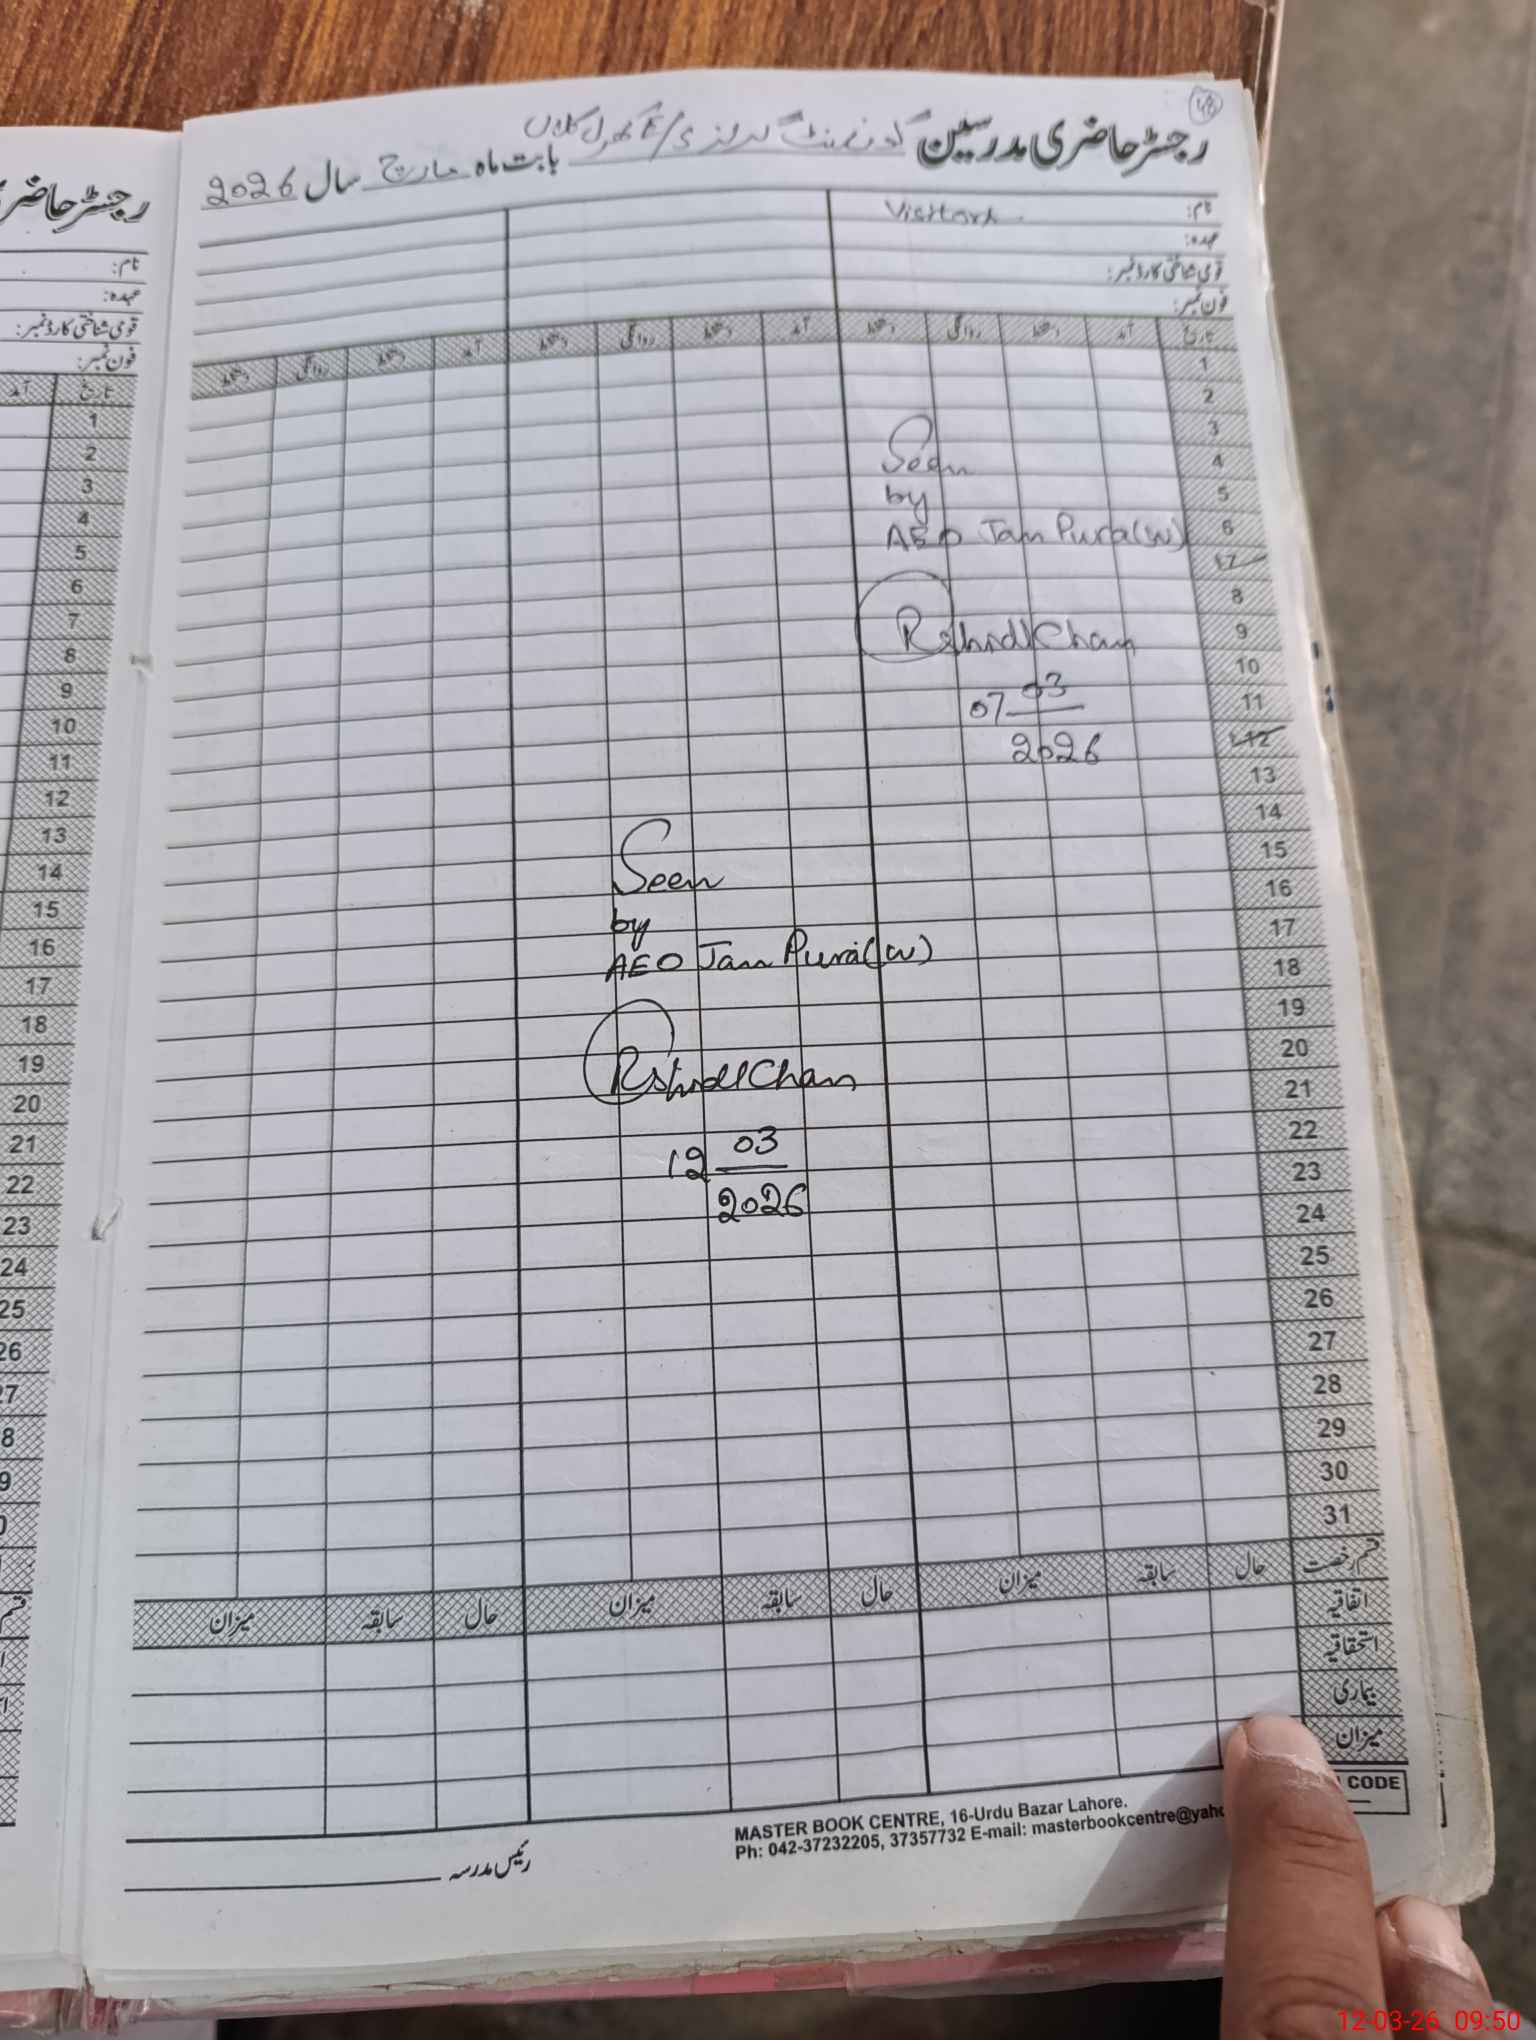 48
رجسٹر حاضری مدرسین گورنمنٹ گرلز
بابت ماہ مارچ سال 2026
نام: Visitors
عہدہ:
قومی شناختی کارڈ نمبر:
فون نمبر:
تاریخ آمد دستخط روانگی دستخط آمد دستخط روانگی دستخط آمد دستخط روانگی دستخط
1
2
3
4
5
6
7
8
9
10
11
12
13
14
15
16
17
18
19
20
21
22
23
24
25
26
27
28
29
30
31
Seen
by
AEO Jam Pura(W)
07 03
2026
Seen
by
AEO Jam Pura(W)
12 03
2026
قسم رخصت حال سابقہ میزان حال سابقہ میزان حال سابقہ میزان
اتفاقیہ
استحقاقیہ
بیماری
میزان
CODE
MASTER BOOK CENTRE, 16-Urdu Bazar Lahore.
Ph: 042-37232205, 37357732 E-mail: masterbookcentre@yaho
رئیس مدرسہ
رجسٹر حاضری
نام:
عہدہ:
قومی شناختی کارڈ نمبر:
فون نمبر:
تاریخ آمد
1
2
3
4
5
6
7
8
9
10
11
12
13
14
15
16
17
18
19
20
21
22
23
24
25
26
27
8
9
12-03-26 09:50